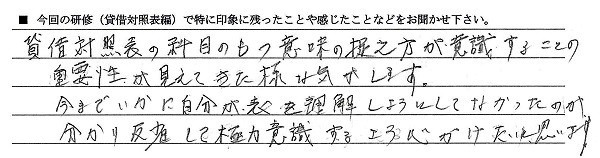 ■ 今回の研修（貸借対照表編）で特に印象に残ったことや感じたことなどをお聞かせ下さい。
貸借対照表の科目のもつ意味の捉え方が意識することの
重要性が見えてきた様な気がします。
今までいかに自分が表を理解しようとしてなかったのが
分かり反省して極力意識するよう心がけたいと思います